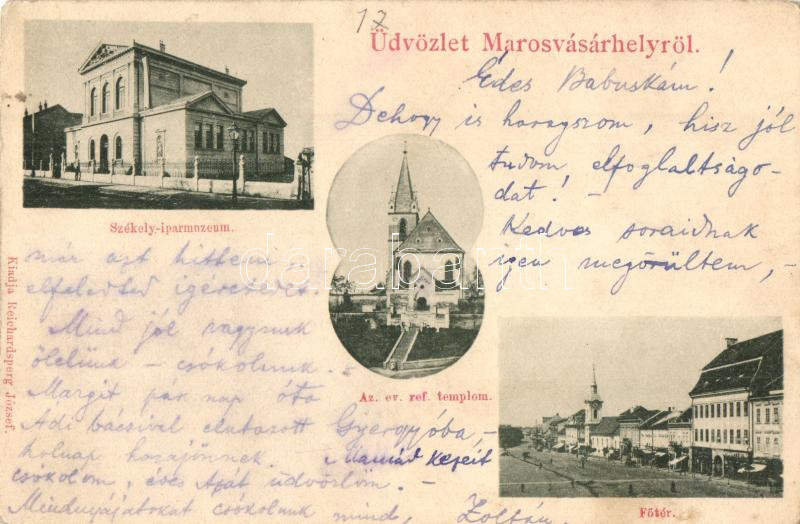 17
Üdvözlet Marosvásárhelyről.
Édes Babuskám!
Dehogy is haragszom, hisz jól
tudom elfoglaltságo-
dat! -
Kedves soraidnak
igen megörültem, -
már azt hittem,
elfeledted igéretedet.
Mind jól vagyunk
ölelünk - csókolunk. -
Margit pár nap óta
Adi bácsival elutazott Gyergyóba, -
holnap hazajönnek. Mamád kezeit
csókolom, édes Apát üdvözlöm. -
Mindnyájatokat csókolunk mind, Zoltán
Székely-iparmuzeum.
Az. ev. ref. templom.
Főtér.
Kiadja Reichardsperg József.
darabanth